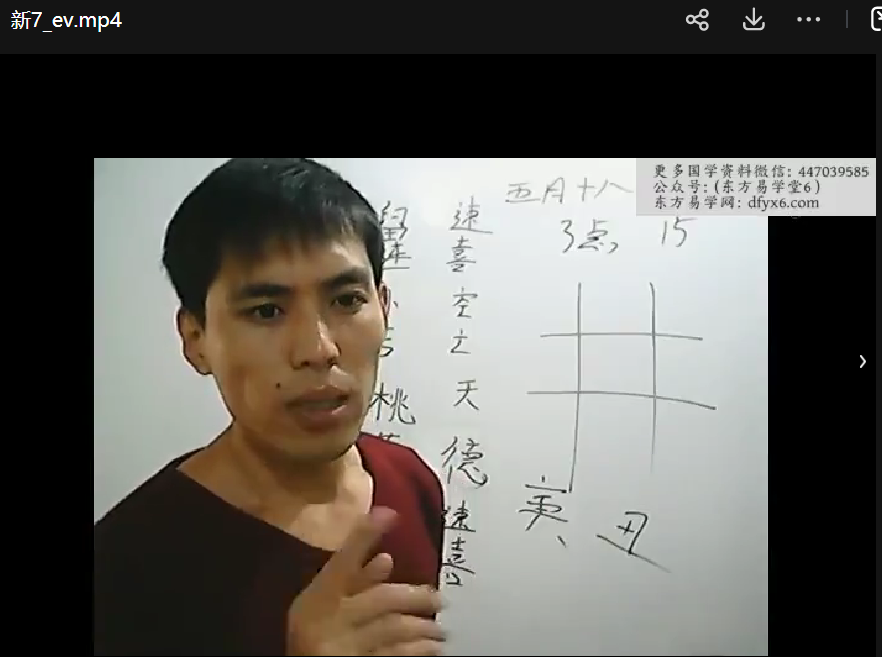 新7_ev.mp4
更多国学资料微信: 447039585
公众号:(东方易学堂6)
东方易学网: dfyx6.com
五月十八
3点, 15
速喜
空亡
天德
速喜
留连
小吉
桃
寅、丑